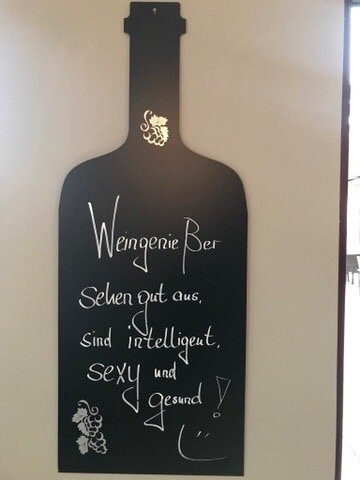 Weingenießer
sehen gut aus,
sind intelligent,
sexy und
gesund!